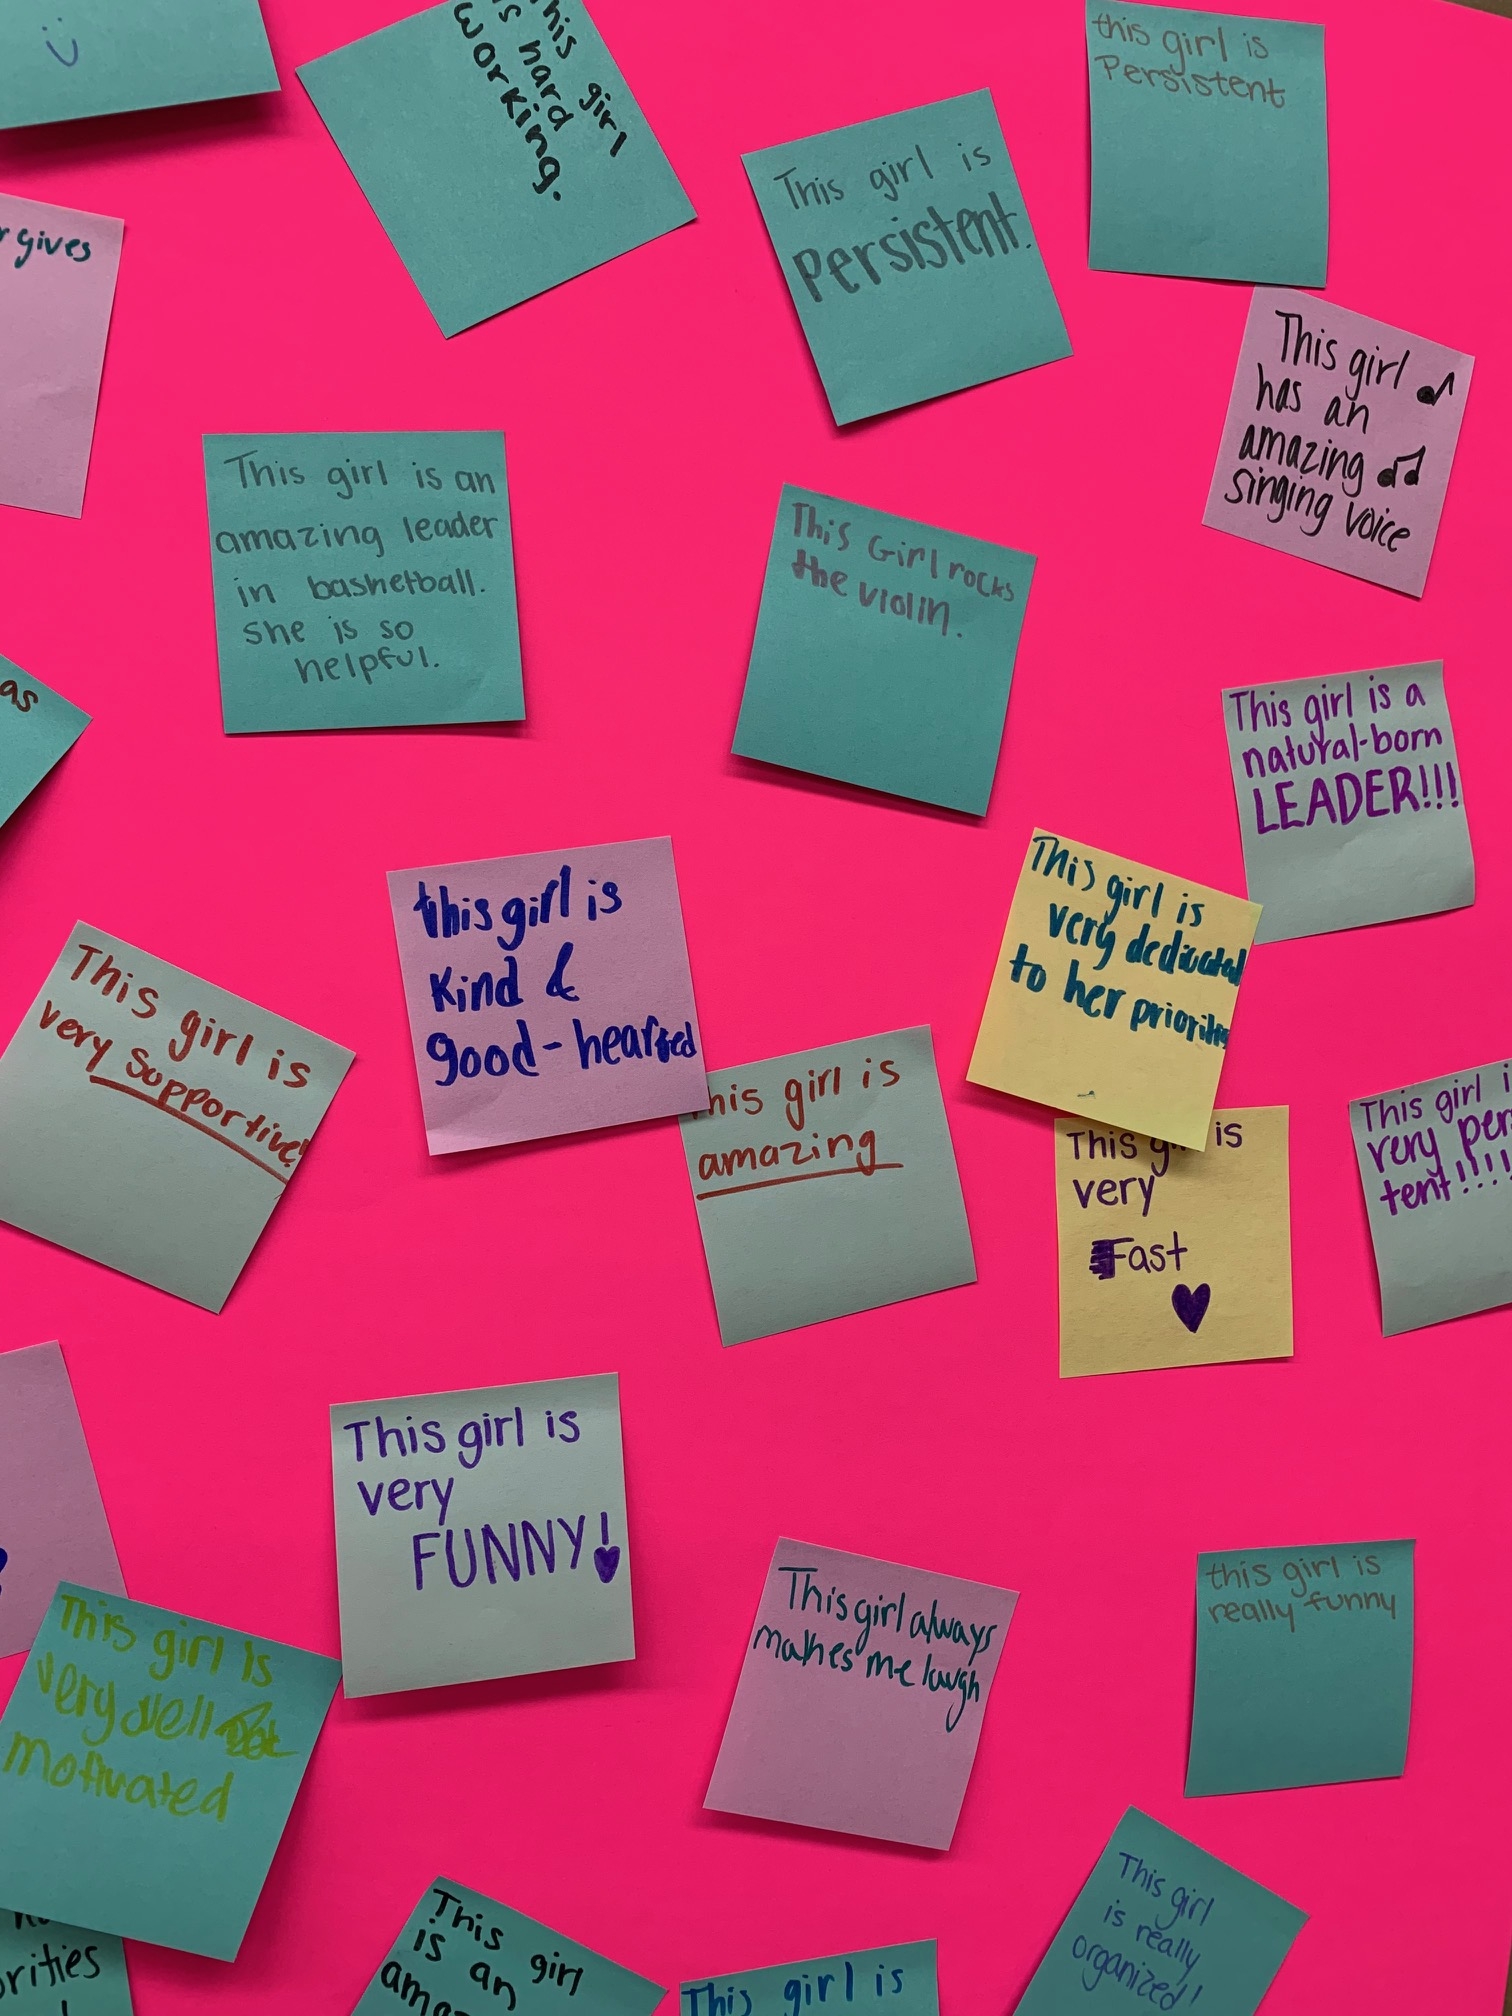 This girl
is hard
working.
this girl is
Persistent
This girl is
Persistent.
gives
This girl
has an
amazing
singing voice
This girl is an
amazing leader
in basketball.
She is so
helpful.
This Girl rocks
the violin.
as
This girl is a
natural-born
LEADER!!!
This girl is
very dedicated
to her priorities
this girl is
Kind &
good-hearted
This girl is
very supportive!
This girl is
amazing
This girl is
very
Fast
This girl
very
tent!!!!
This girl is
very
FUNNY!
This girl always
makes me laugh
this girl is
really funny
This girl is
very well
motivated
This girl
is really
organized!
This girl
is an
This girl is